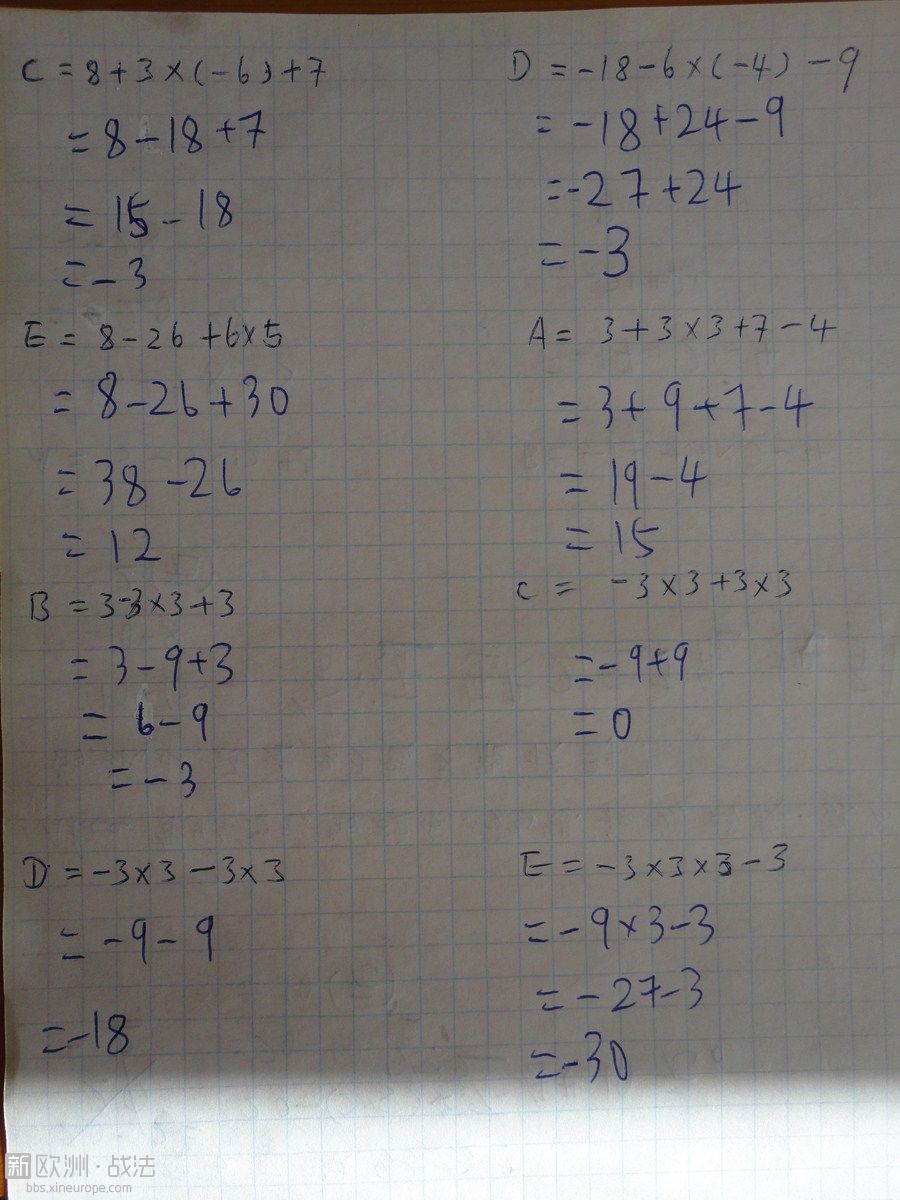 C = 8 + 3 × (-6) + 7
= 8 - 18 + 7
= 15 - 18
= - 3
D = -18 - 6 × (-4) - 9
= -18 + 24 - 9
= -27 + 24
= -3
E = 8 - 26 + 6 × 5
= 8 - 26 + 30
= 38 - 26
= 12
A = 3 + 3 × 3 + 7 - 4
= 3 + 9 + 7 - 4
= 19 - 4
= 15
B = 3 - 3 × 3 + 3
= 3 - 9 + 3
= 6 - 9
= - 3
C = -3 × 3 + 3 × 3
= - 9 + 9
= 0
D = -3 × 3 - 3 × 3
= -9 - 9
= -18
E = -3 × 3 × 3 - 3
= -9 × 3 - 3
= -27 - 3
= -30
新欧洲·战法
bbs.xineurope.com